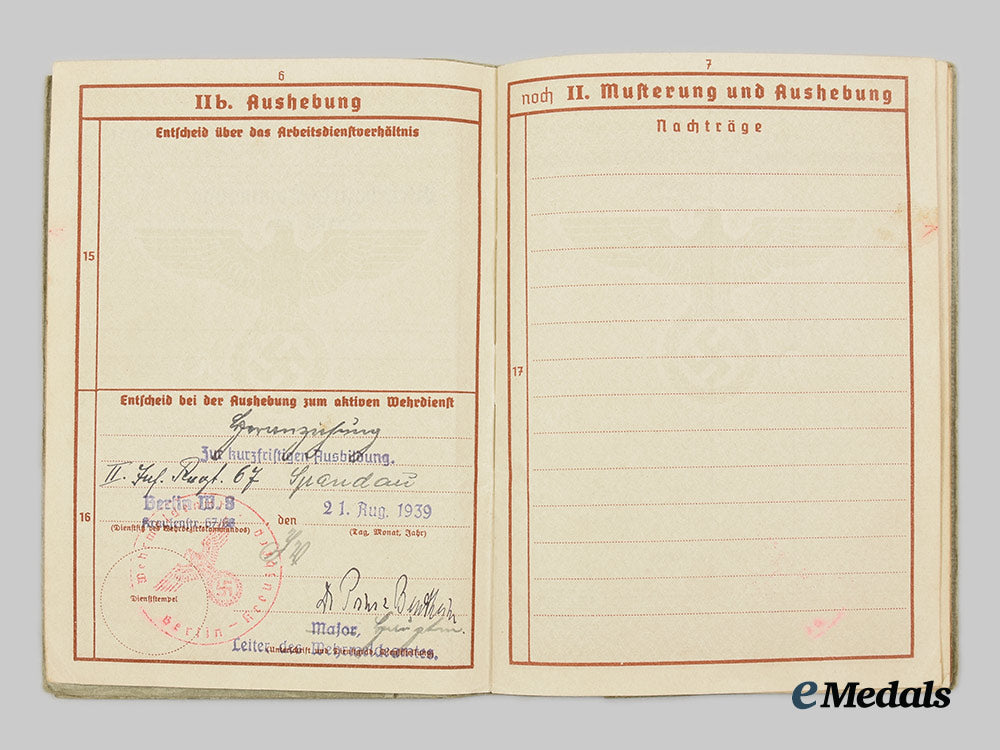 6
IIb. Aushebung
Entscheid über das Arbeitsdienstverhältnis
15
Entscheid bei der Aushebung zum aktiven Wehrdienst
Heranziehung
Zur kurzfristigen Ausbildung.
II. Inf. Regt. 67 Spandau
16
Berlin W. 8
21. Aug. 1939
, den
(Dienstsitz des Wehrbezirkskommandos)
(Tag, Monat, Jahr)
Dienststempel
Berlin
Major,
Leiter des Wehrmeldeamtes.
7
noch II. Musterung und Aushebung
Nachträge
17
eMedals